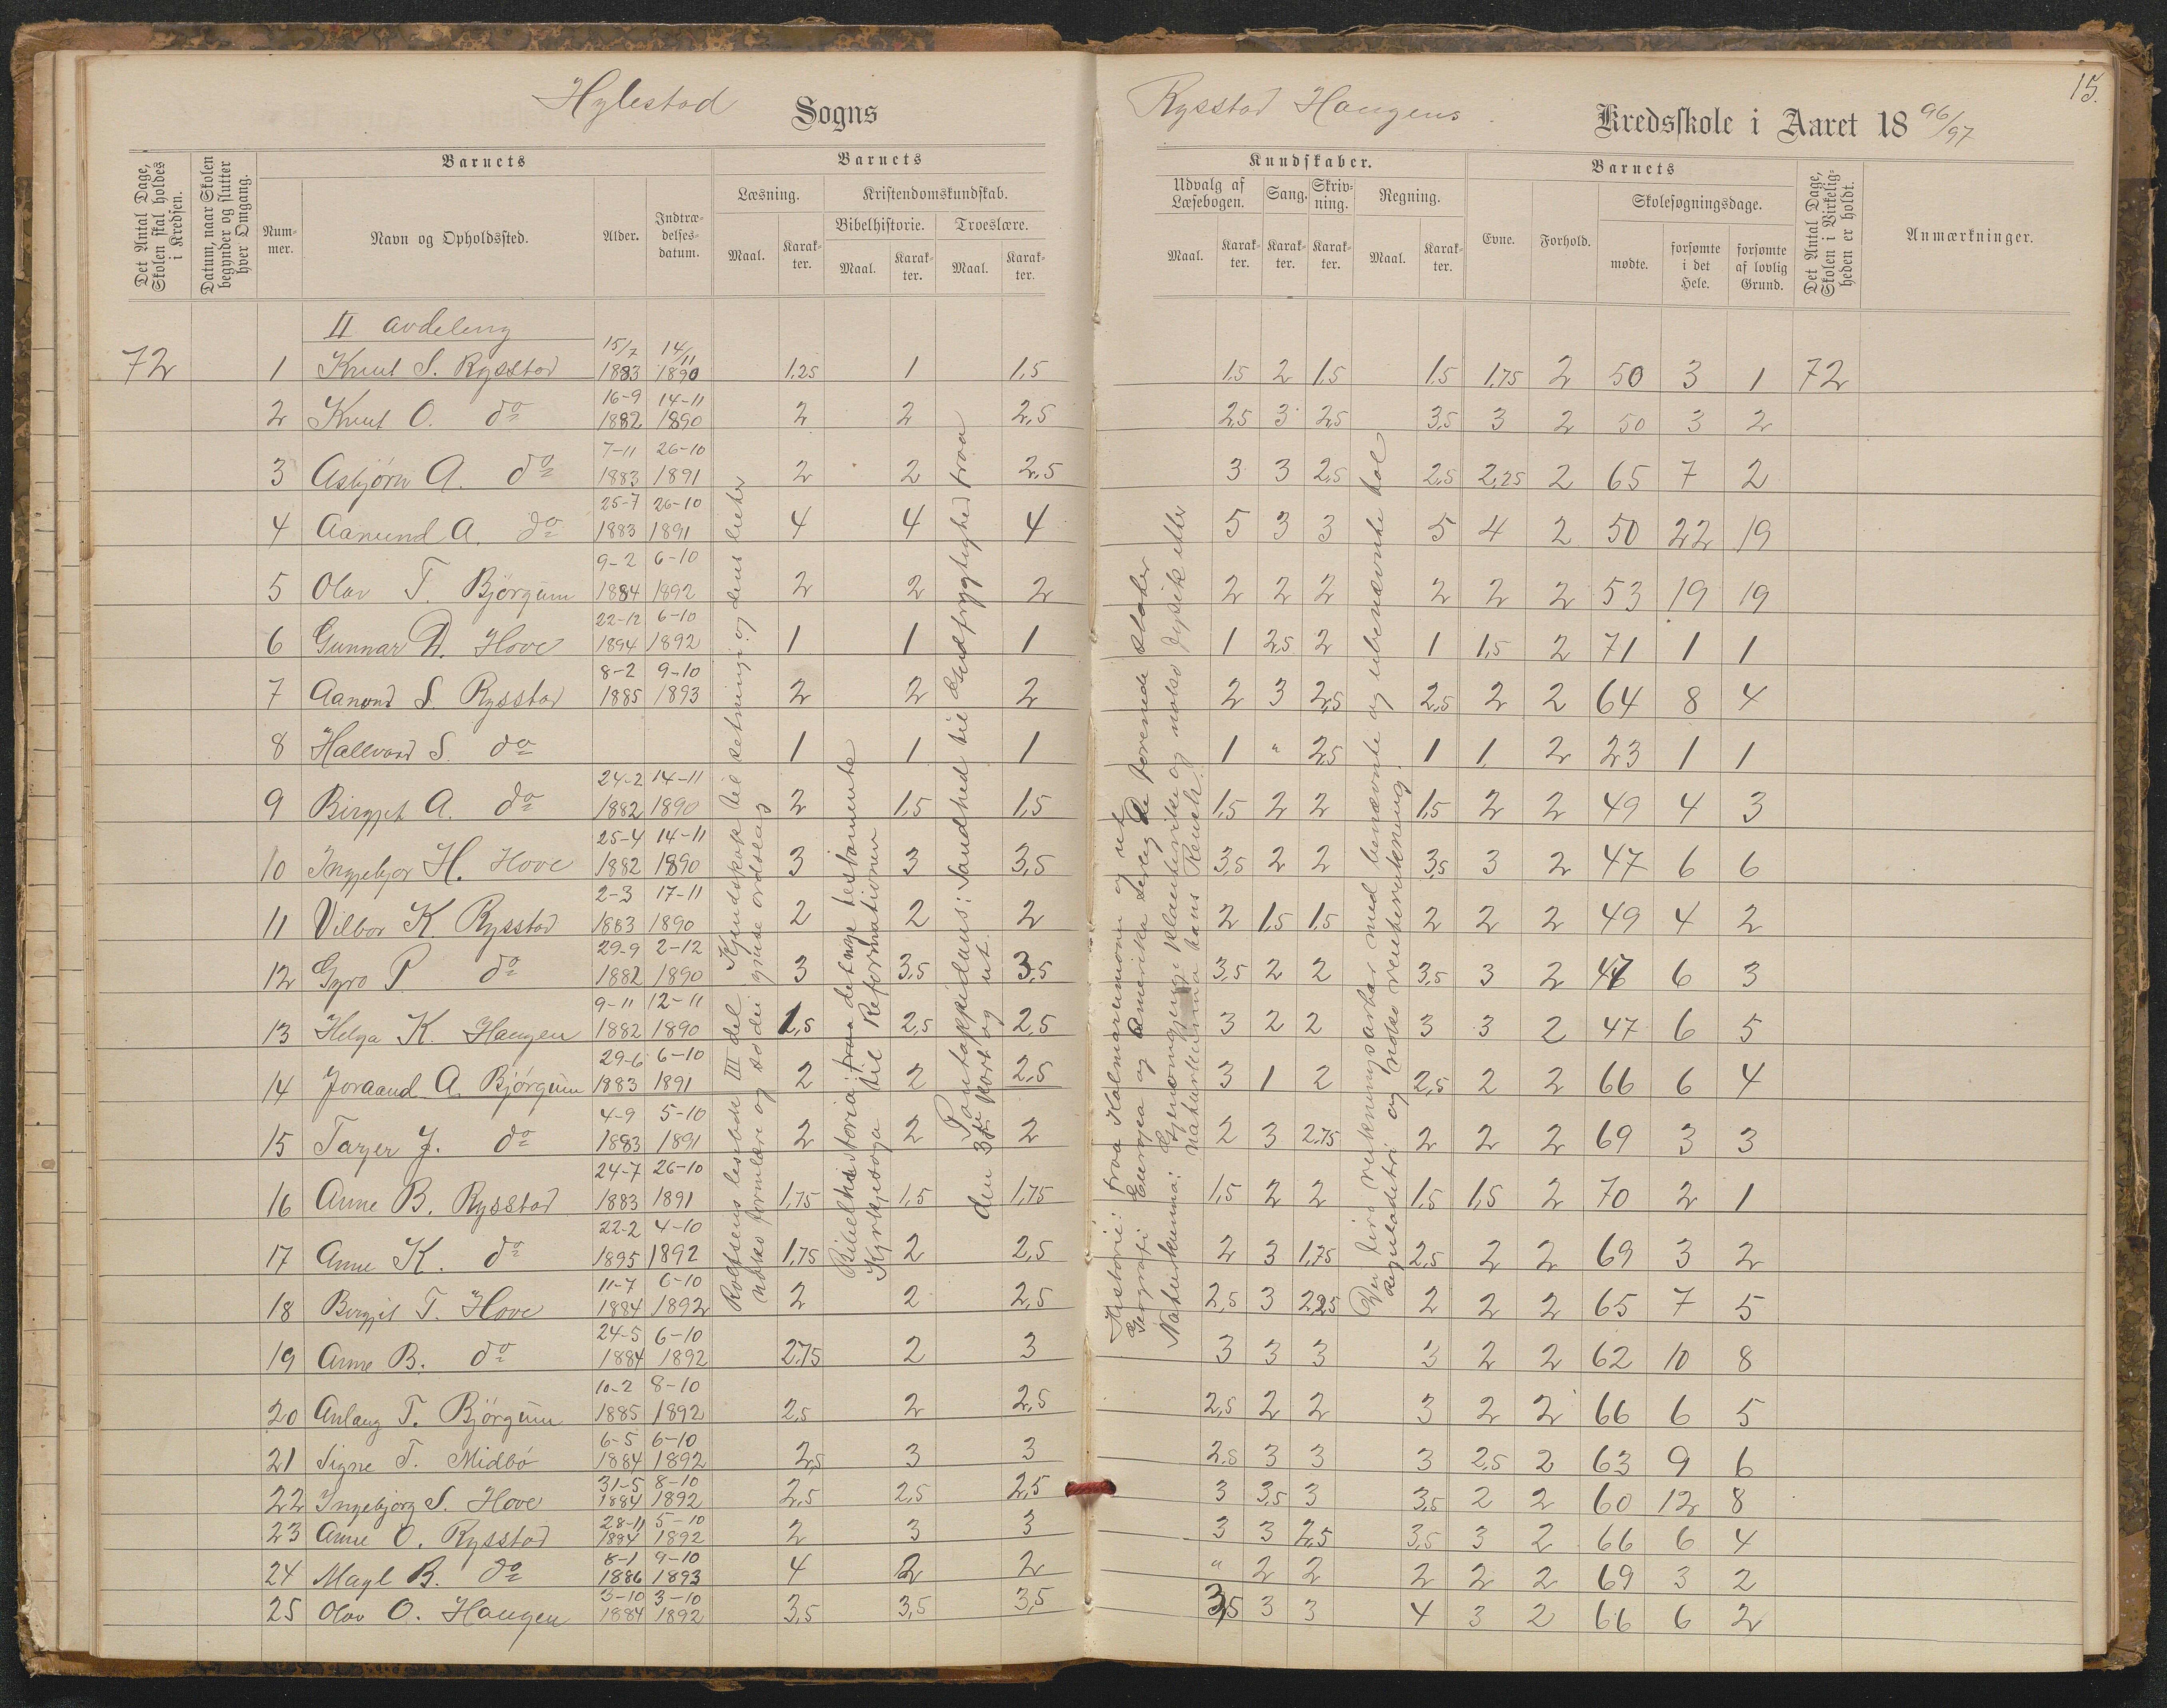 15.
Hylestad Sogns Rysstad Haugens Kredsskole i Aaret 1896/97
Det Antal Dage, Skolen skal holdes i Kredsen.
Datum, naar Skolen begynder og slutter hver Omgang.
Barnets
Nummer.
Navn og Opholdssted.
Alder.
Indtrædelsesdatum.
Barnets
Læsning.
Maal.
Karakter.
Kristendomskundskab.
Bibelhistorie.
Maal.
Karakter.
Troeslære.
Maal.
Karakter.
Kundskaber.
Udvalg af Læsebogen.
Maal.
Karakter.
Sang.
Karakter.
Skrivning.
Karakter.
Regning.
Maal.
Karakter.
Barnets
Evne.
Forhold.
Skolesøgningsdage.
mødte.
forsømte i det Hele.
forsømte af lovlig Grund.
Det Antal Dage, Skolen i Virkeligheden er holdt.
Anmærkninger.
II avdeling
72 1 Knut S. Rysstad 15/7 1883 14/11 1890 1,25 1 1,5 1,5 2 1,5 1,5 1,75 2 50 3 1 72
2 Knut O. do 16-9 1882 14-11 1890 2 2 2,5 2,5 3 2,5 3,5 3 2 50 3 2
3 Asbjørn A. do 7-11 1883 26-10 1891 2 2 2,5 3 3 2,5 2,5 2,25 2 65 7 2
4 Aanund A. do 25-7 1883 26-10 1891 4 4 4 5 3 3 5 4 2 50 22 19
5 Olav T. Bjørgum 9-2 1884 6-10 1892 2 2 2 2 2 2 2 2 2 53 19 19
6 Gunnar D. Hove 22-12 1894 6-10 1892 1 1 1 1 2,5 2 1 1,5 2 71 1 1
7 Aanond S. Rysstad 8-2 1885 9-10 1893 2 2 2 2 3 2,5 2,5 2 2 64 8 4
8 Hallvard S. do 1 1 1 1 " 2,5 1 1 2 23 1 1
9 Birgjit A. do 24-2 1882 14-11 1890 2 1,5 1,5 1,5 2 2 1,5 2 2 49 4 3
10 Ingjebjor H. Hove 25-4 1882 14-11 1890 3 3 3,5 3,5 2 2 3,5 3 2 47 6 6
11 Vilbor K. Rysstad 2-3 1883 17-11 1890 2 2 2 2 1,5 1,5 2 2 2 49 4 2
12 Gyro P. do 29-9 1882 2-12 1890 3 3,5 3,5 3,5 2 2 3,5 3 2 47 6 3
13 Helga K. Haugen 9-11 1882 12-11 1890 1,5 2,5 2,5 3 2 2 3 3 2 47 6 5
14 Joraand A. Bjørgum 29-6 1883 6-10 1891 2 2 2,5 3 1 2 2,5 2 2 66 6 4
15 Targer J. do 4-9 1883 5-10 1891 2 2 2 2 3 2,75 2 2 2 69 3 3
16 Anne B. Rysstad 24-7 1883 26-10 1891 1,75 1,5 1,75 1,5 2 2 1,5 1,5 2 70 2 1
17 Anne K. do 22-2 1895 4-10 1892 1,75 2 2,5 2 3 1,75 2,5 2 2 69 3 2
18 Birgjit T. Hove 11-7 1884 6-10 1892 2 2 2,5 2,5 3 2,25 2 2 2 65 7 5
19 Anne B. do 24-5 1884 6-10 1892 2,75 2 3 3 3 3 3 2 2 62 10 8
20 Anlaug T. Bjørgum 10-2 1885 8-10 1892 2,5 2 2,5 2,5 2 2 3 2 2 66 6 5
21 Signe T. Midbø 6-5 1884 6-10 1892 2,5 3 3 2,5 3 3 3 2,5 2 63 9 6
22 Ingebjørg S. Hove 31-5 1884 8-10 1892 2,5 2,5 2,5 3 3,5 3 3,5 2 2 60 12 8
23 Anne O. Rysstad 28-11 1884 5-10 1892 2 3 3 3 3 2,5 3,5 3 2 66 6 4
24 Magl B. do 8-1 1886 9-10 1893 4 2 2 " 2 2 2 2 2 69 3 2
25 Olav O. Haugen 3-10 1884 3-10 1892 3,5 3,5 3,5 3,5 3 3 4 3 2 66 6 2
Rolfsens lesebok III del. Kjendskap til setningi og dens lieker
nokko formlære og so dei gjuse ordslag
Bibelhistoria: fraa det nye testamente
Kyrkjesoga til Reformationen
Pontoppidans: Sandhed til Gudfrygtighed fraa
den 3die part og ut.
Historie: fraa Kalmarunionen og ut
Geografi: Europa og Amerika serleg De forenede stater
Naturkunna: Gjenomgjengi planterike og nokso fysik etter
naturkunna hans Reusch.
Dei fire rekningsarter med benævnte og ubenævnte tal
Reguladetri og nokso renterekning.